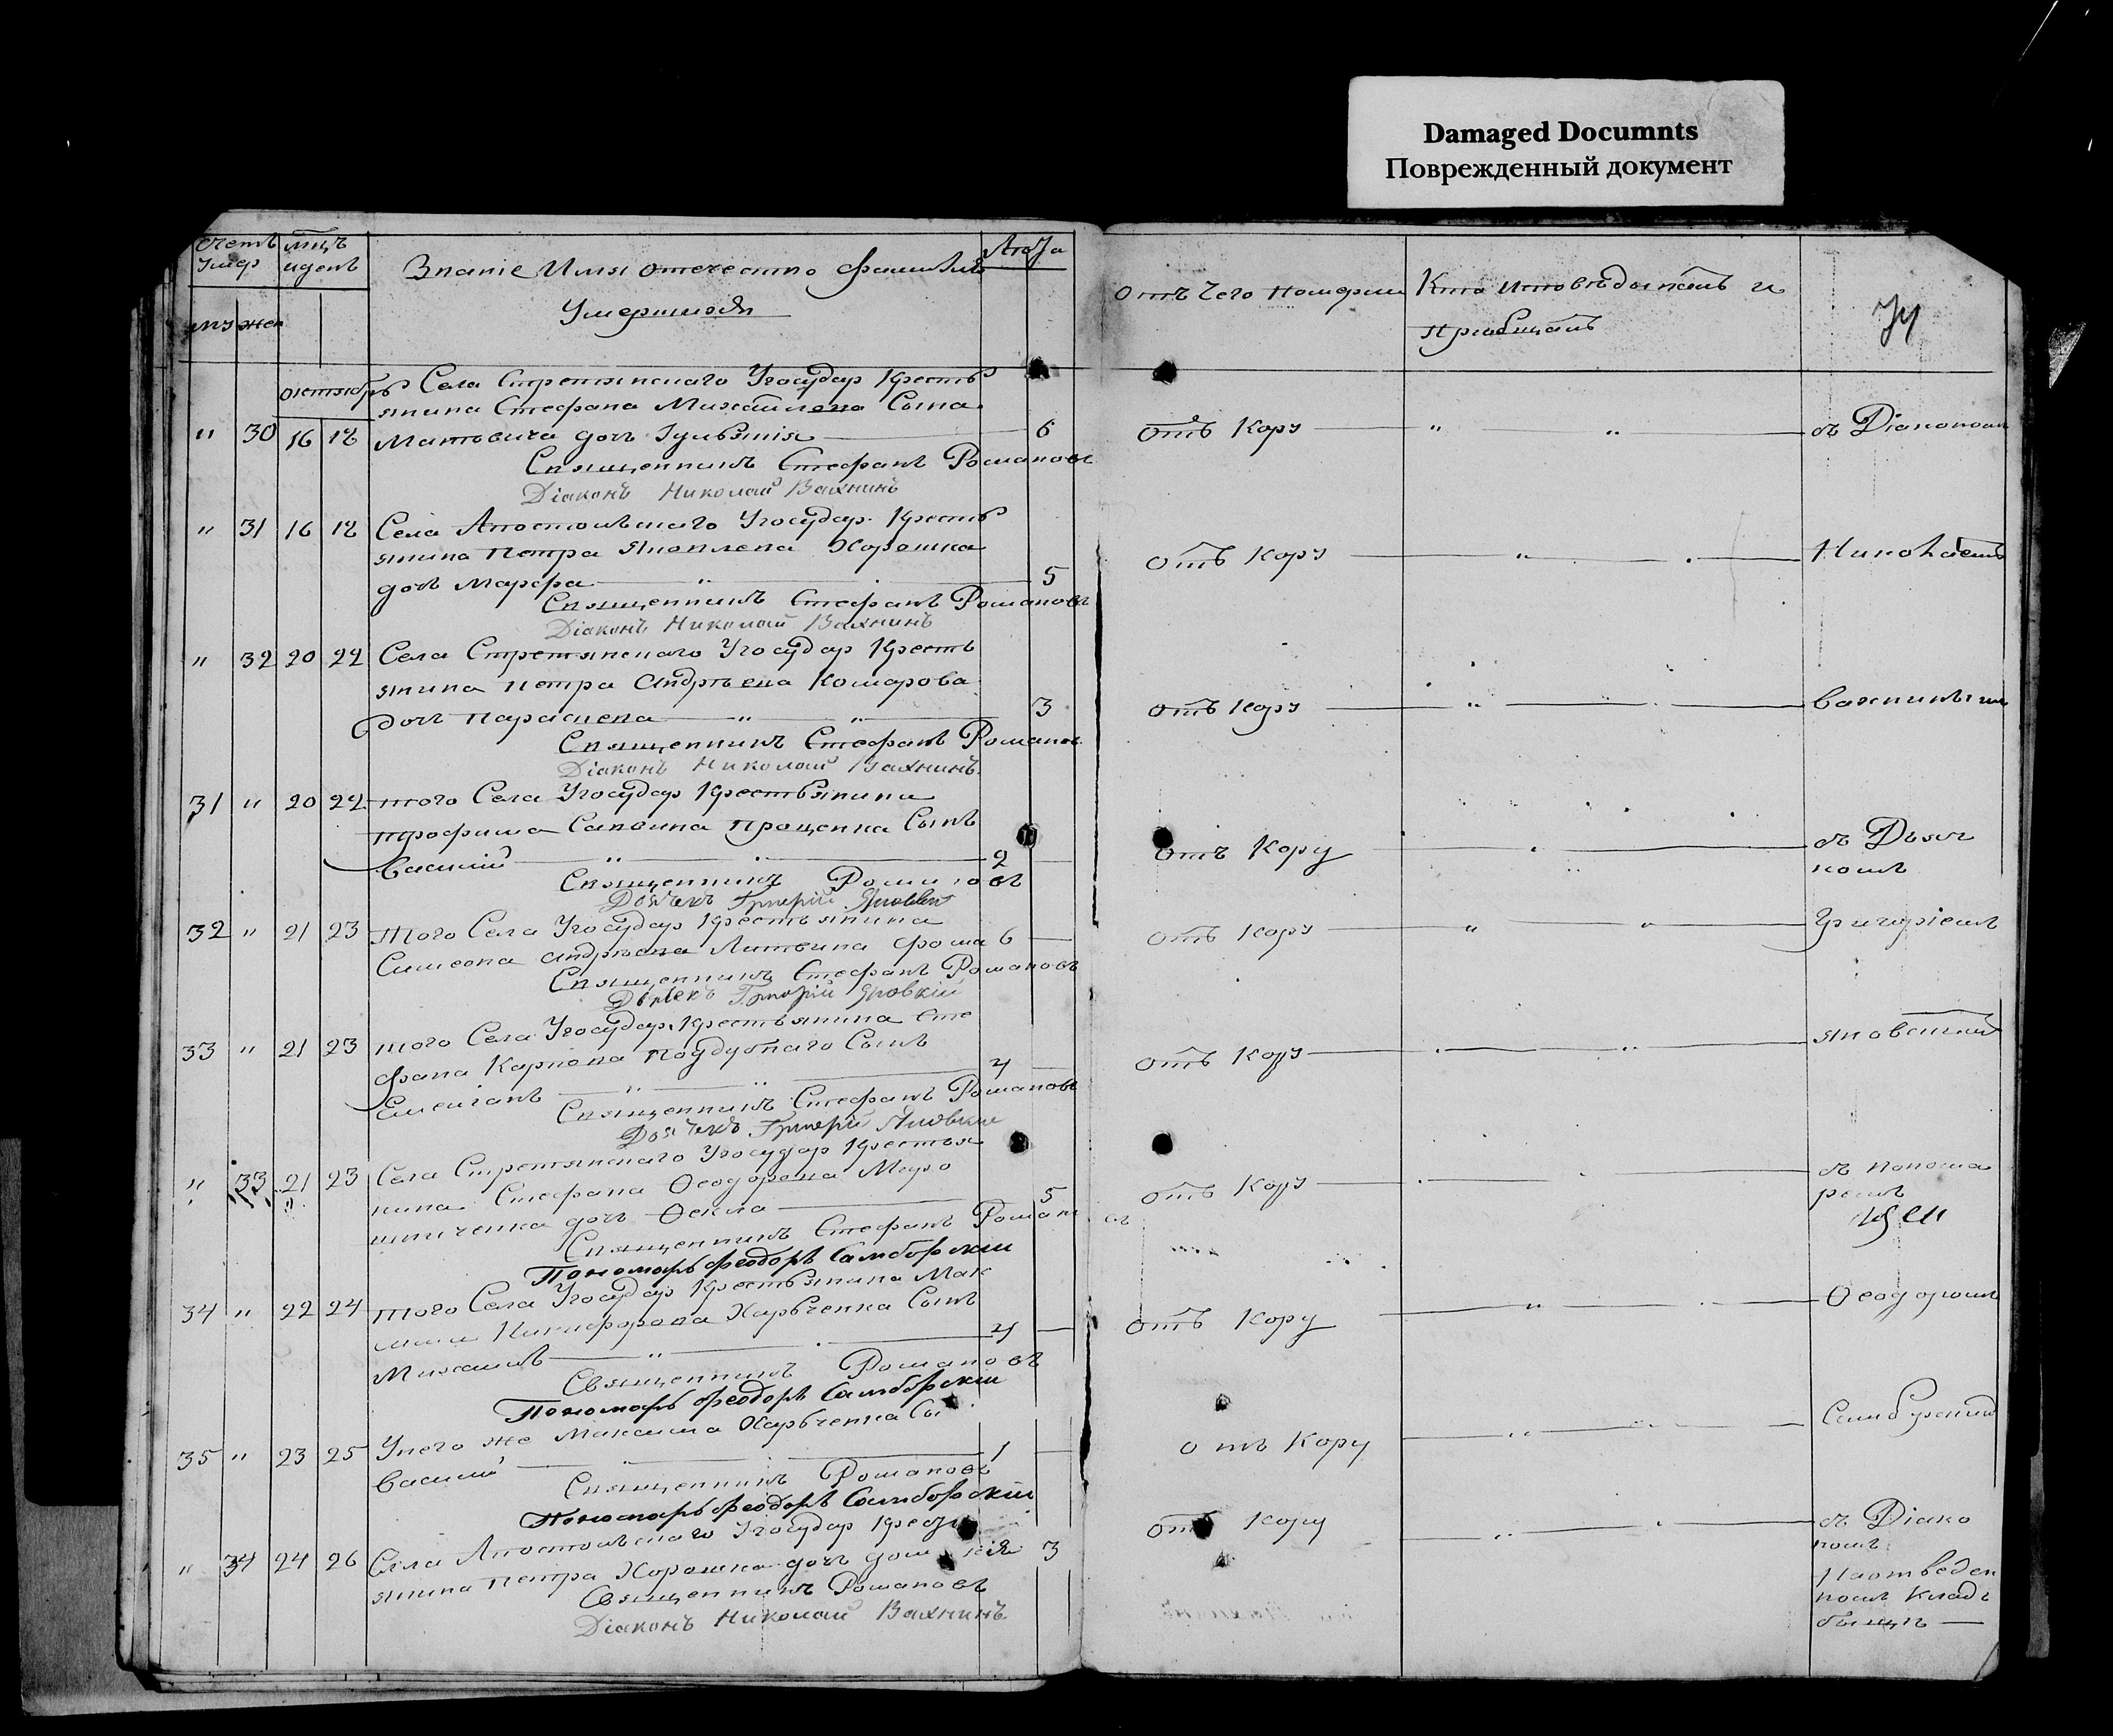 Damaged Documnts
Поврежденный документ
Счетъ умер
мцъ и день
Званіе Имя отечество фамилія
Умершихъ
Лѣта
му жен
Отъ чего померли
Кто исповѣдывалъ и
пріобщалъ
октябрь
Села Стретянскаго Угосудар Кресть
янина Стефана Михайлова Сына
" 30 16 18 Матвеича дочь Іульянія 6
Священникъ Стефанъ Романовъ
Діаконъ Николай Вахнинъ
Отъ Кору
съ Діакономъ
" 31 16 18 Села Апостольскаго Угосудар Кресть
янина Петра Яковлева Хорошка
дочь Марфа 5
Священникъ Стефанъ Романовъ
Діаконъ Николай Вахнинъ
отъ Кору
Николаемъ
" 32 20 22 Села Стретянскаго Угосудар Кресть
янина Петра Андреева Комарова
дочь Параскева 3
Священникъ Стефанъ Романов
Діаконъ Николай Вахнинъ
отъ Кору
Вахнинымъ
31 " 20 22 того Села Угосудар Крестьянина
Трофима Саввина Проценка Сынъ
Василій 2
Священникъ Романовъ
Дьячекъ Григорій Яновскій
отъ Кору
съ Дьяч
комъ
32 " 21 23 того Села Угосудар Крестьянина
Симеона Андреева Литвина Фома 6
Священникъ Стефанъ Романовъ
Дьячекъ Григорій Яновскій
отъ Кору
Григоріемъ
33 " 21 23 того Села Угосудар Крестьянина Сте
фана Карпова Поддубнаго Сынъ
4
Священникъ Стефанъ Романовъ
Дьячекъ Григорій Яновскій
отъ Кору
Яновскимъ
" 33 21 23 Села Стретянскаго Угосудар Крестья
нина Стефана Ѳеодорова Миро
шниченка дочь Ѳекла 5
Священникъ Стефанъ Роман
овъ
Пономарь Феодоръ Самборскій
отъ Кору
съ понома
ремъ
34 " 22 24 того Села Угосудар Крестьянина Мак
сима Никифорова Харьченка Сынъ
Михаилъ 4
Священникъ Романовъ
Пономарь Феодоръ Самборскій
отъ Кору
Ѳеодоромъ
35 " 23 25 Унего же Максима Харьченка Сы
Василій 1
Священникъ Романовъ
Пономарь Феодоръ Самборскій
отъ Кору
Самбурскимъ
" 34 24 26 Села Апостольскаго Угосудар Крест
янина Петра Хорошка дочь 3
Священникъ Романовъ
Діаконъ Николай Вахнинъ
отъ Кору
съ Діако
номъ
Наотведен
номъ Клад
бищѣ